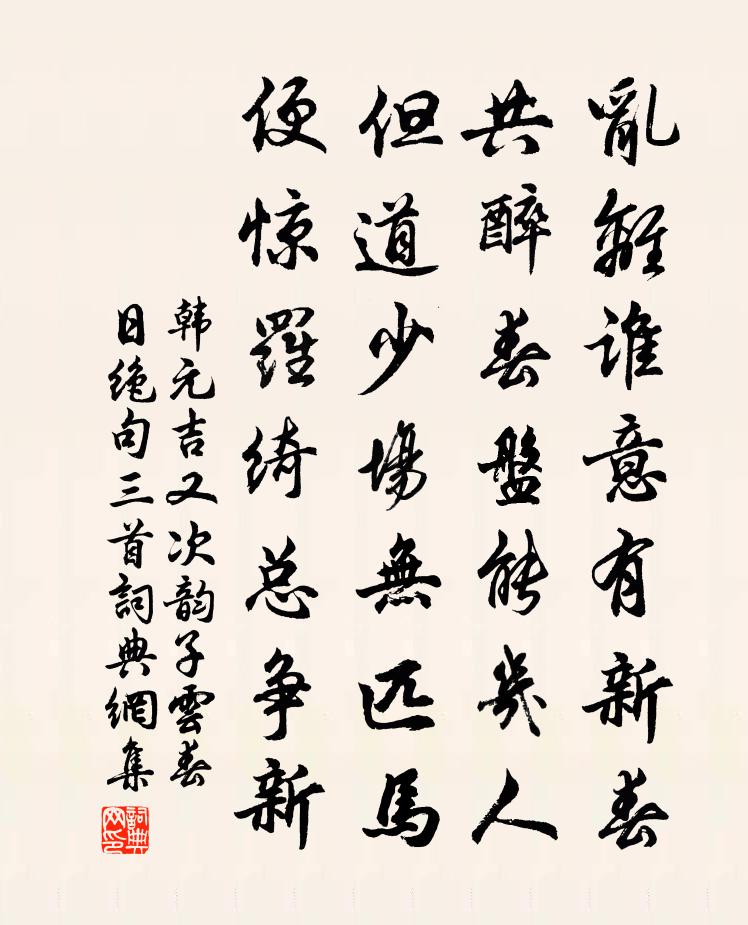 亂離誰意有新春
共醉春盤能幾人
但道少場無匹馬
便惊羅綺总争新
韩元吉又次韵子雲春
日絶句三首詞典網集
詞典网印